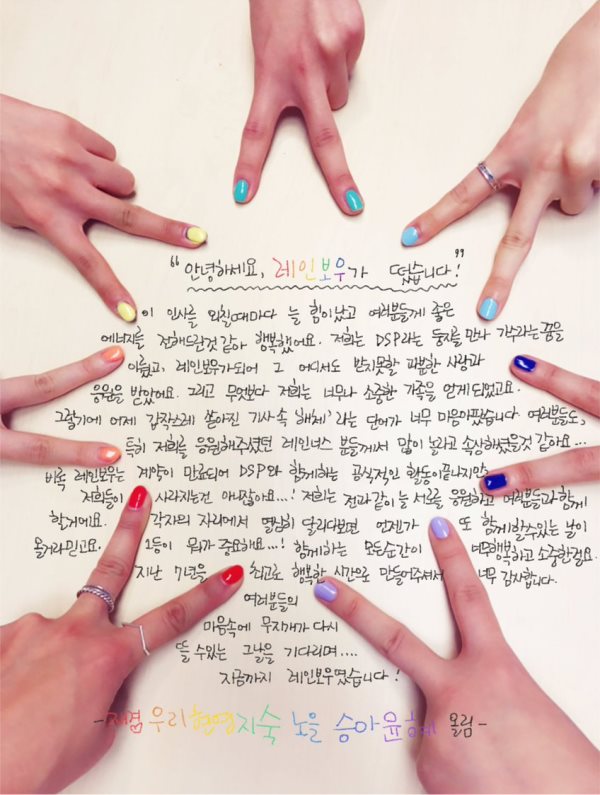 "안녕하세요, 레인보우가 떴습니다!"
이 인사를 외칠때마다 늘 힘이났고 여러분들께 좋은
에너지를 전해드린것 같아 행복했어요. 저희는 DSP라는 둥지를 만나 가수라는 꿈을
이뤘고, 레인보우가되어 그 어디서도 받지못할 과분한 사랑과
응원을 받았어요. 그리고 무엇보다 저희는 너무나 소중한 가족을 얻게되었고요.
그렇기에 어제 갑작스레 쏟아진 기사 속 '해체' 라는 단어가 너무 마음아팠습니다 여러분들도,
특히 저희를 응원해주셨던 레인너스 분들께서 많이 놀라고 속상하셨을것 같아요...
비록 레인보우는 계약이 만료되어 DSP와 함께하는 공식적인 활동이끝나지만,
저희들이 사라지는건 아니잖아요...! 저희는 전과같이 늘 서로를 응원하고 여러분들과 함께
할거에요. 각자의 자리에서 열심히 달리다보면 언젠가 또 함께할수있는 날이
올거라믿고요. 1등이 뭐가 중요해요...! 함께하는 모든순간이 너무행복하고 소중한걸요.
지난 7년을 최고로 행복한 시간으로 만들어주셔서 너무 감사합니다.
여러분들의
마음속에 무지개가 다시
뜰 수있는 그날을 기다리며....
지금까지 레인보우였습니다!
-재경 우리 현영 지숙 노을 승아 윤혜 올림-